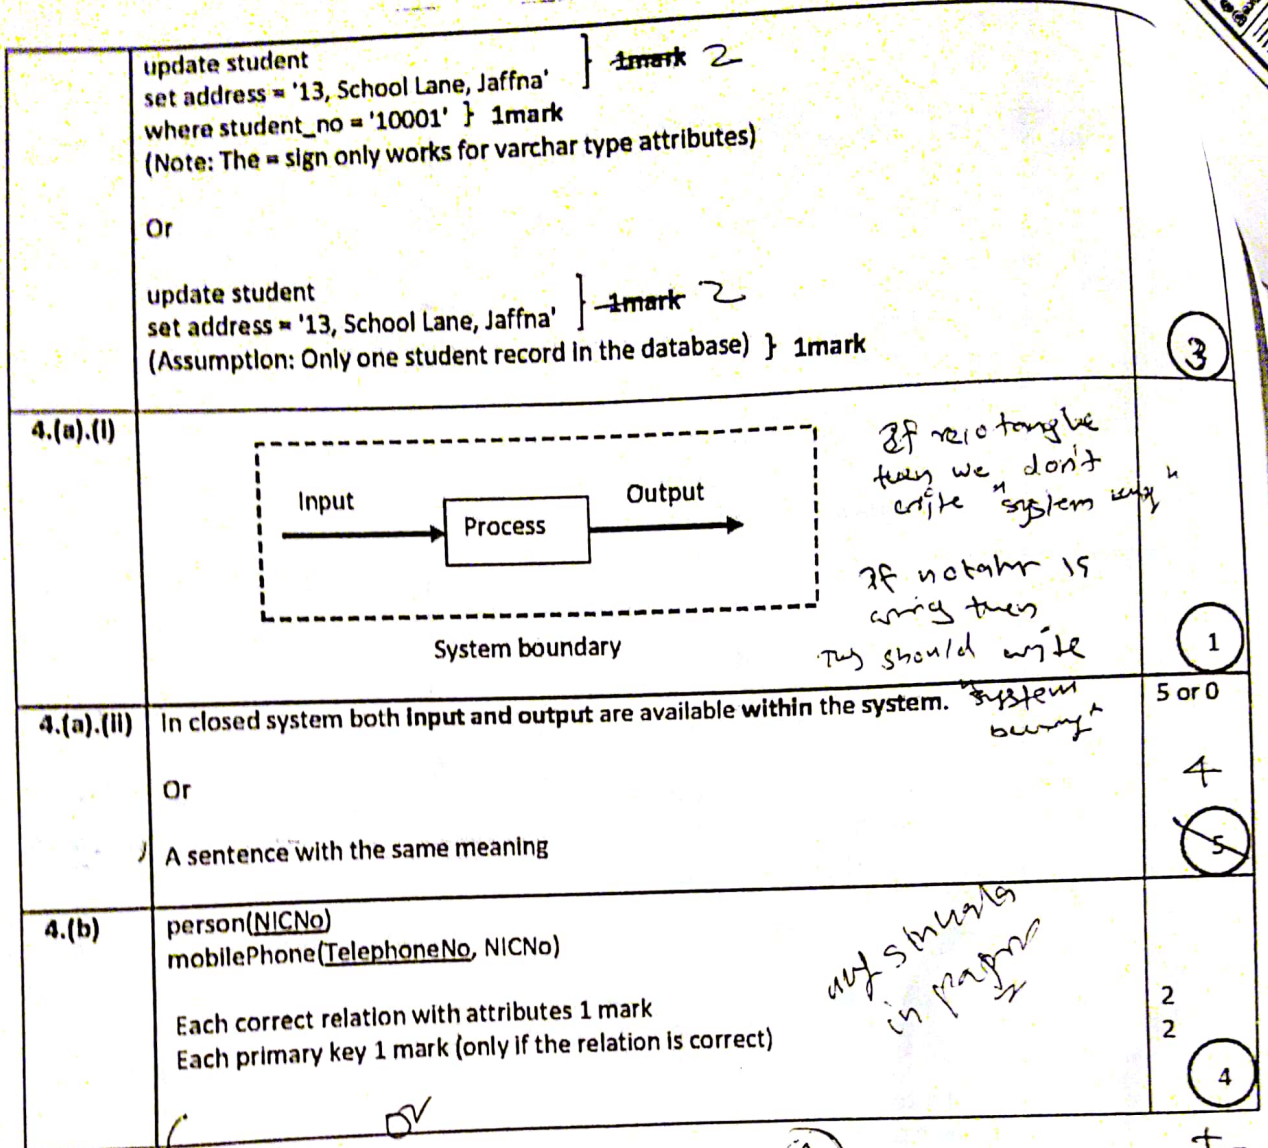 update student
set address = '13, School Lane, Jaffna' } 1mark 2
where student_no = '10001' } 1mark
(Note: The = sign only works for varchar type attributes)
Or
update student
set address = '13, School Lane, Jaffna' } 1mark 2
(Assumption: Only one student record in the database) } 1mark
3
4.(a).(i)
Input
Process
Output
System boundary
If
then we don't
write "system
If is
then
should write
"system
1
4.(a).(ii) In closed system both input and output are available within the system.
5 or 0
Or
4
A sentence with the same meaning
5
4.(b) person(NICNo)
mobilePhone(TelephoneNo, NICNo)
sinhala
in
Each correct relation with attributes 1 mark 2
Each primary key 1 mark (only if the relation is correct) 2
4
or